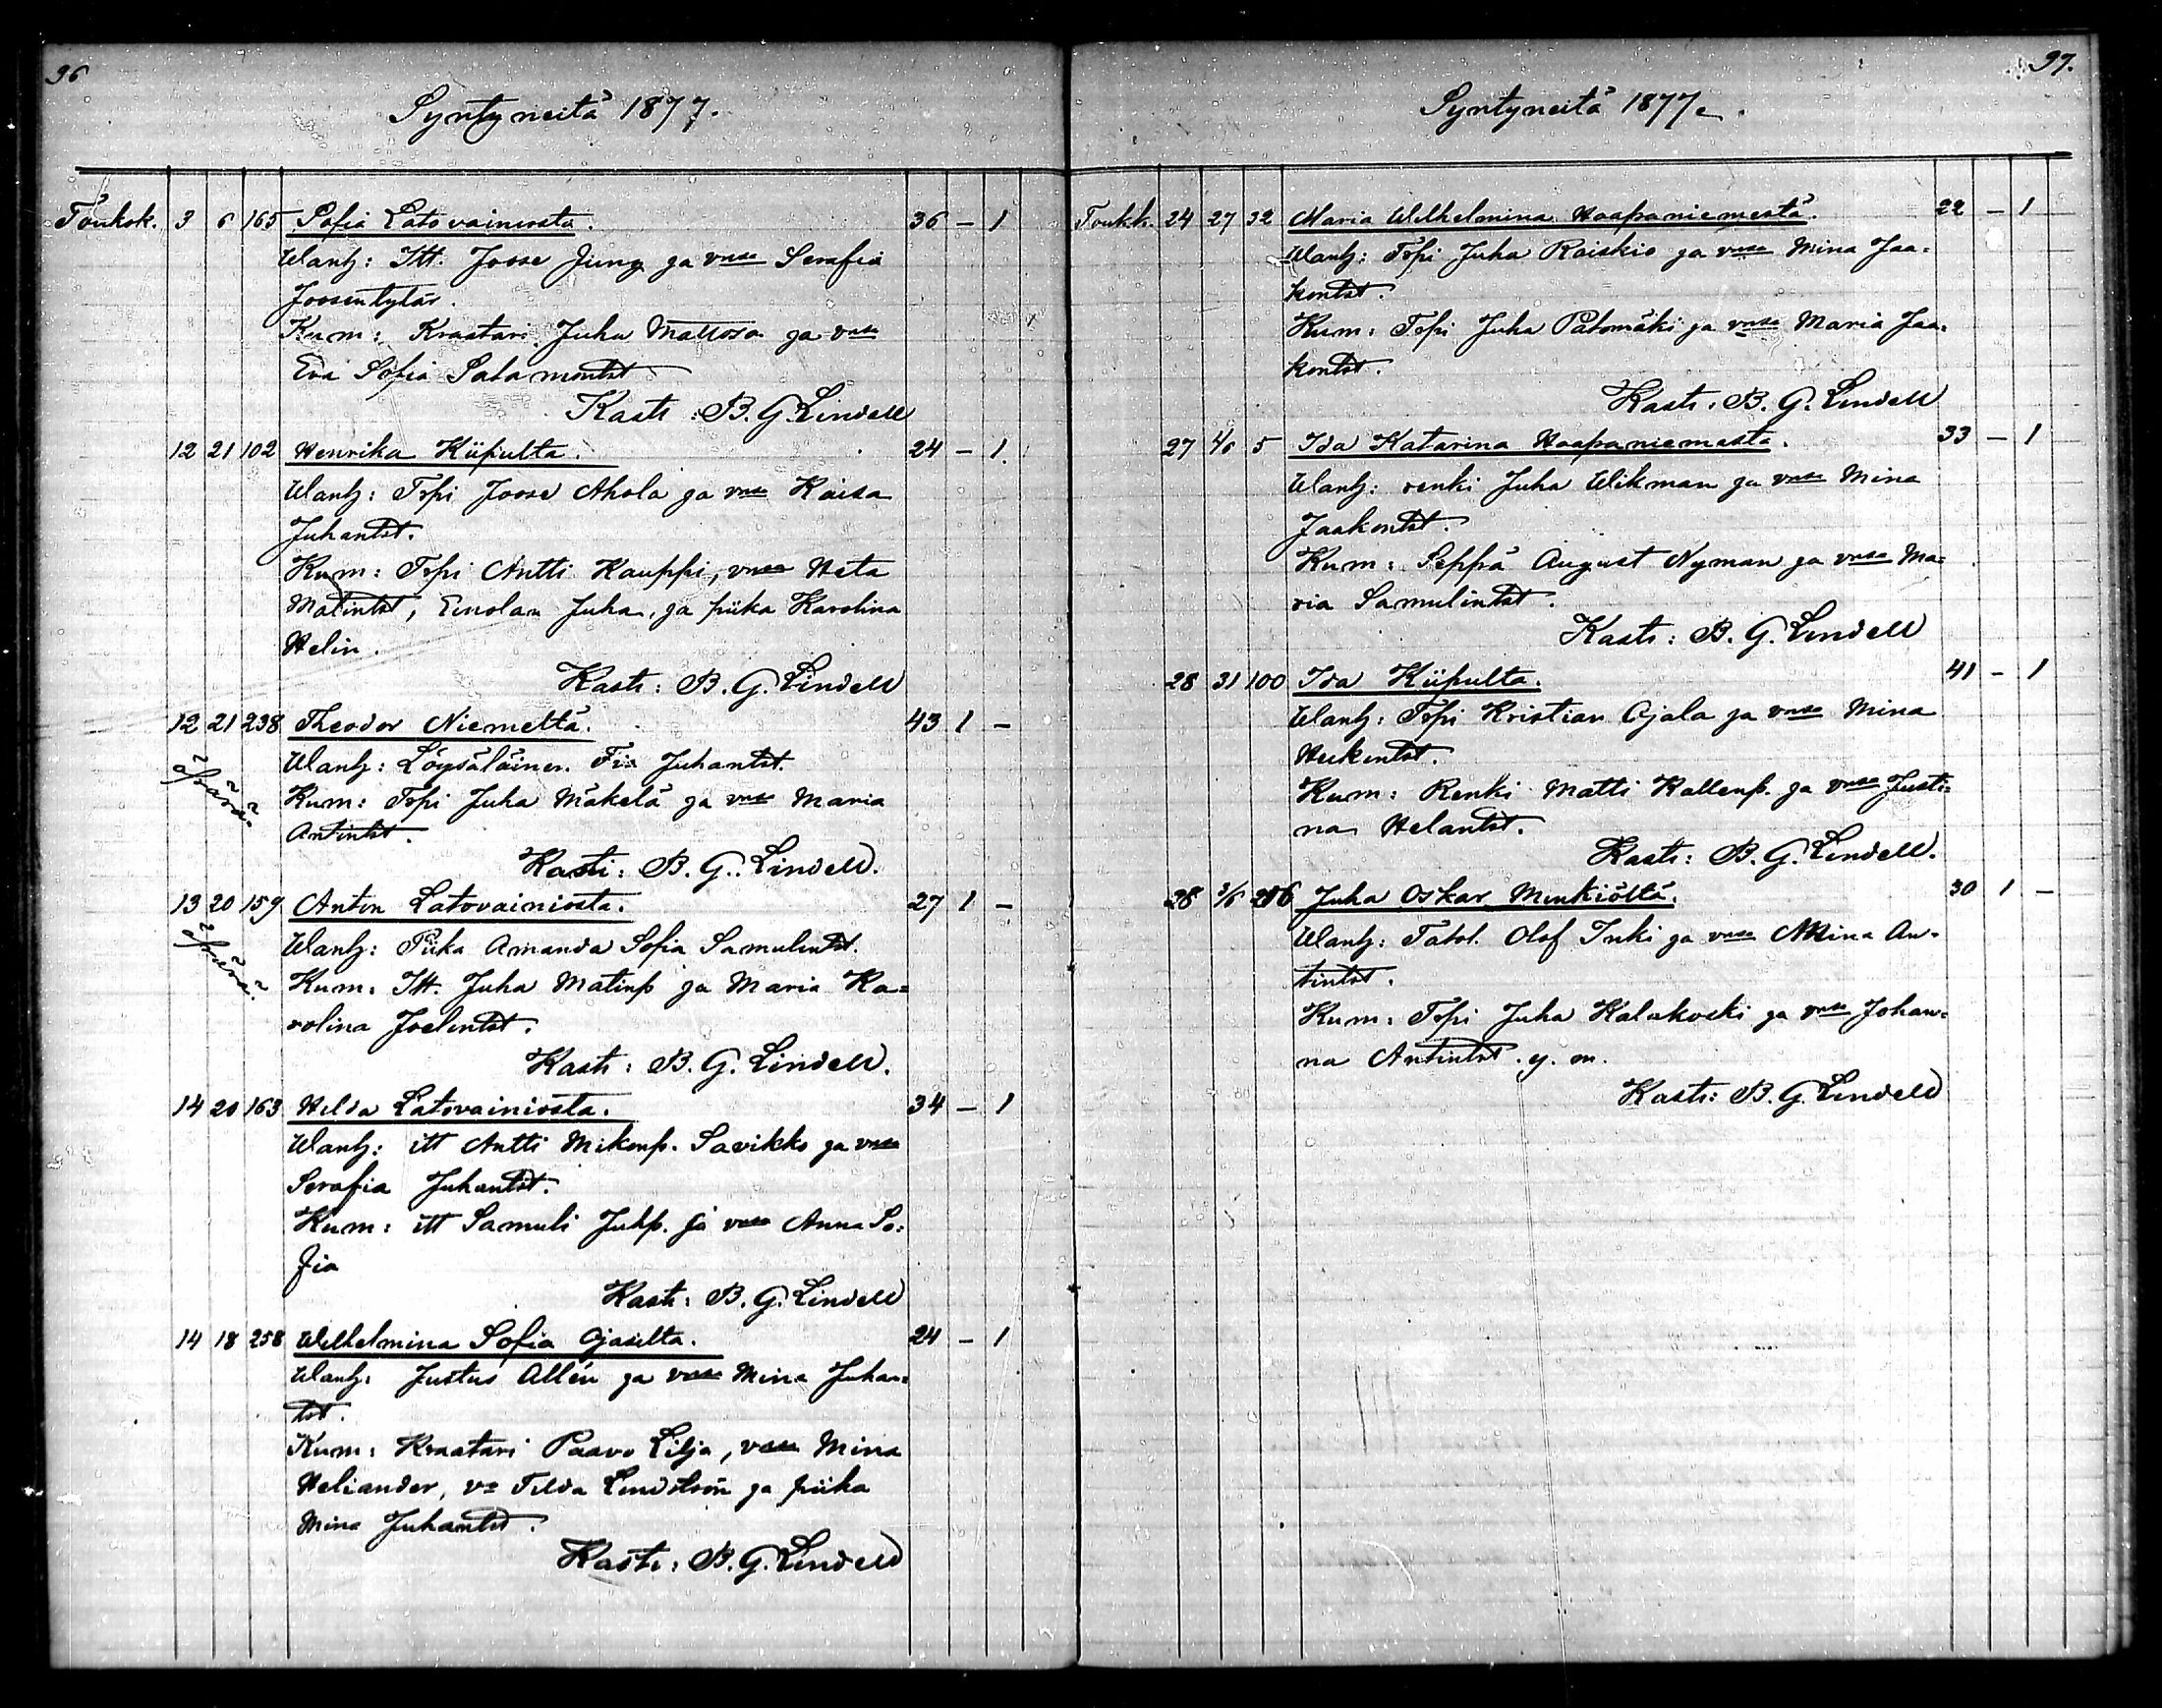 96
Syntyneitä 1877.
Toukok. 3 6 165 Sofia Latovainiosta. 36 – 1
Wanh: Itt. Joose Jung ja vmsa Serafia
Joosentytär.
Kum: Kraatari Juha Mattsson ja vmsa
Eva Sofia Salamontst
Kasti: B. G. Lindell
12 21 102 Henrika Kiipulta. 24 – 1.
Wanh: Trpi Joose Ahola ja vmsa Kaisa
Juhantst.
Kum: Trpi Antti Kauppi, vmsa Heta
Matintst, Einolan Juha, ja piika Karolina
Helin.
Kasti: B. G. Lindell
12 21 238 Theodor Niemeltä. 43 1 –
Äpärä.
Wanh: Löysäläinen Fia Juhantst.
Kum: Trpi Juha Mäkelä ja vmsa Maria
Antintst.
Kasti: B. G. Lindell.
13 20 159 Anton Latovainiosta. 27 1 –
Äpärä.
Wanh: Piika Amanda Sofia Samulintst.
Kum: Itt. Juha Matinp ja Maria Ka=
rolina Joelintst.
Kasti: B. G. Lindell.
14 20 163 Hilda Latovainiosta. 34 – 1
Wanh: itt Antti Mikonp. Savikko ja vmsa
Serafia Juhantst.
Kum: itt Samuli Juhp. ja vmsa Anna So=
fia
Kasti: B. G. Lindell
14 18 258 Wilhelmina Sofia Ojasilta. 24 – 1
Wanh: Justus Allén ja vmsa Mina Juhan=
tst.
Kum: Kraatari Paavo Lilja, vmsa Mina
Heliander, va Tilda Lindström ja piika
Mina Juhantst.
Kasti: B. G. Lindell
97.
Syntyneitä 1877.
Toukk. 24 27 32 Maria Wilhelmina Haapaniemestä. 22 – 1
Wanh: Trpi Juha Raiskio ja vmsa Mina Jaa=
kontst.
Kum: Trpi Juha Patomäki ja vmsa Maria Jaa=
kontst.
Kasti: B. G. Lindell
27 4/6 5 Ida Katarina Haapaniemestä. 33 – 1
Wanh: renki Juha Wikman ja vmsa Mina
Jaakontst.
Kum: Seppä August Nyman ja vmsa Ma=
ria Samulintst.
Kasti: B. G. Lindell
28 31 100 Ida Kiipulta. 41 – 1
Wanh: Trpi Kristian Ojala ja vmsa Mina
Heikintst.
Kum: Renki Matti Kallenp. ja vmsa Justi=
na Helantst.
Kasti: B. G. Lindell.
28 3/6 Juha Oskar Minkiöltä. 30 1 –
Wanh: Talol. Olof Inki ja vmsa Miina An=
tintst.
Kum: Trpi Juha Kalakoski ja vmsa Johan=
na Antintst. y. m.
Kasti: B. G. Lindell